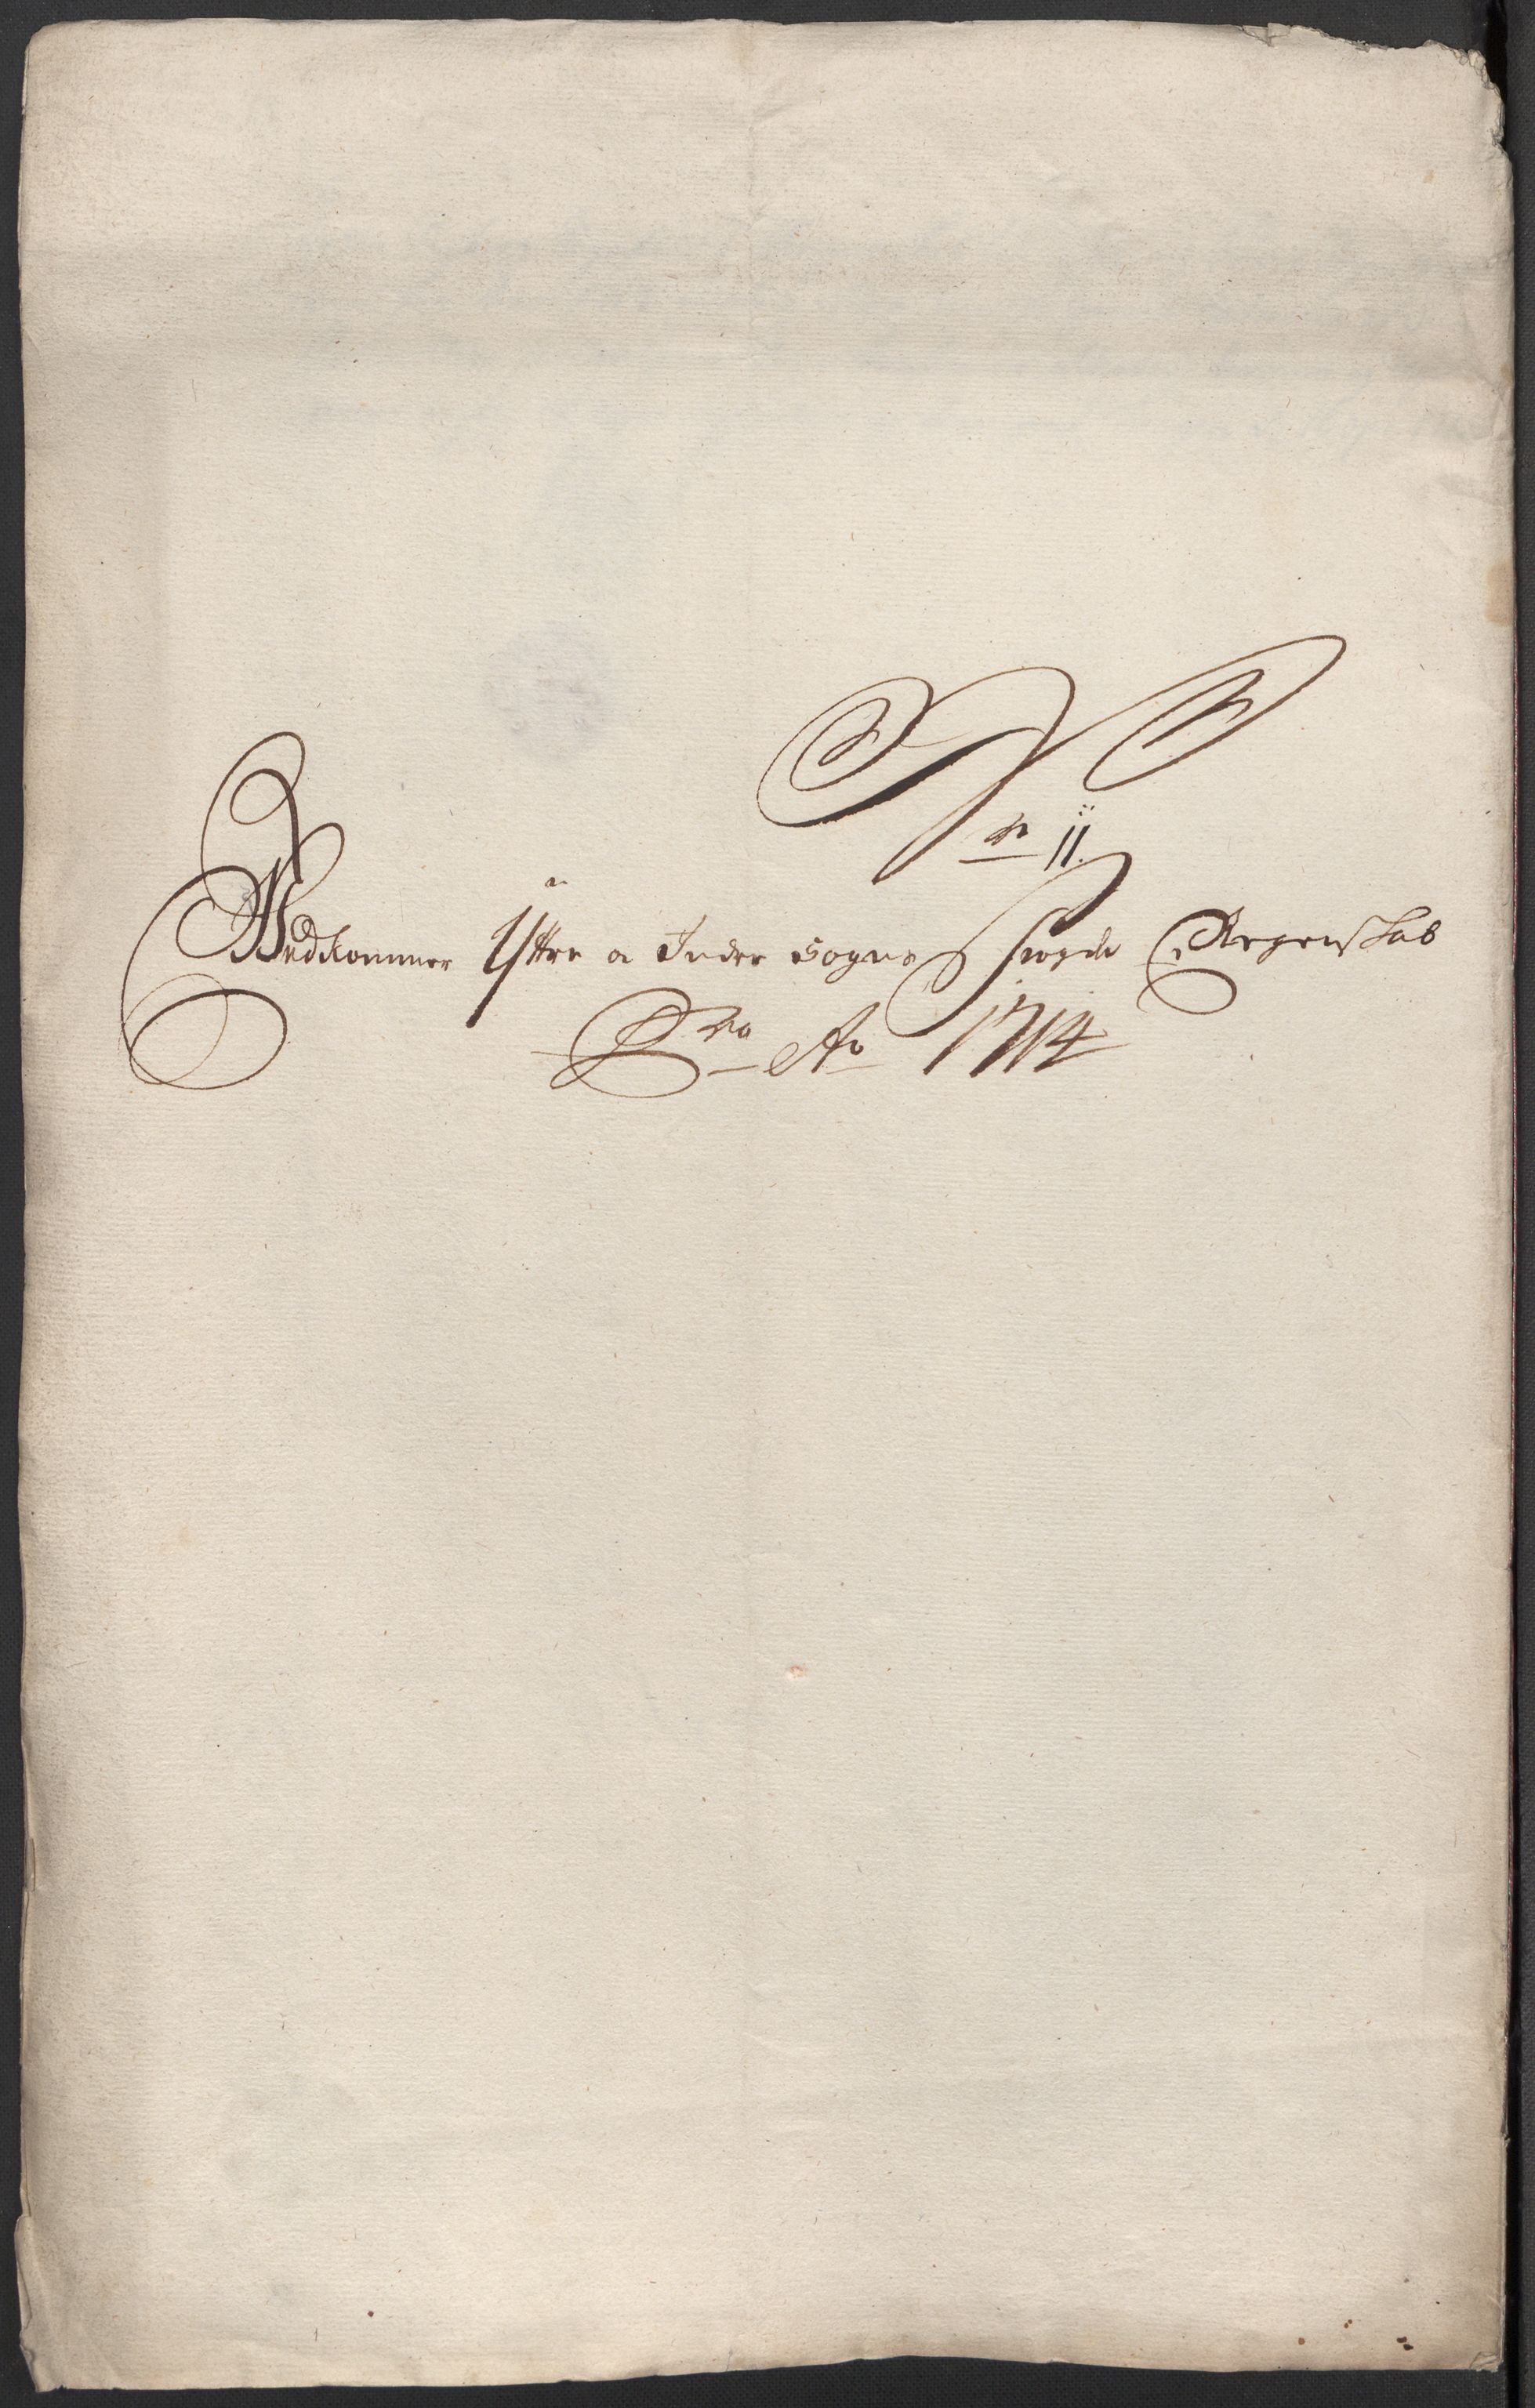 No 11.
Vedkommer Ytter og Inder Sogns Fogde Regenskab
Pro Ao 1714